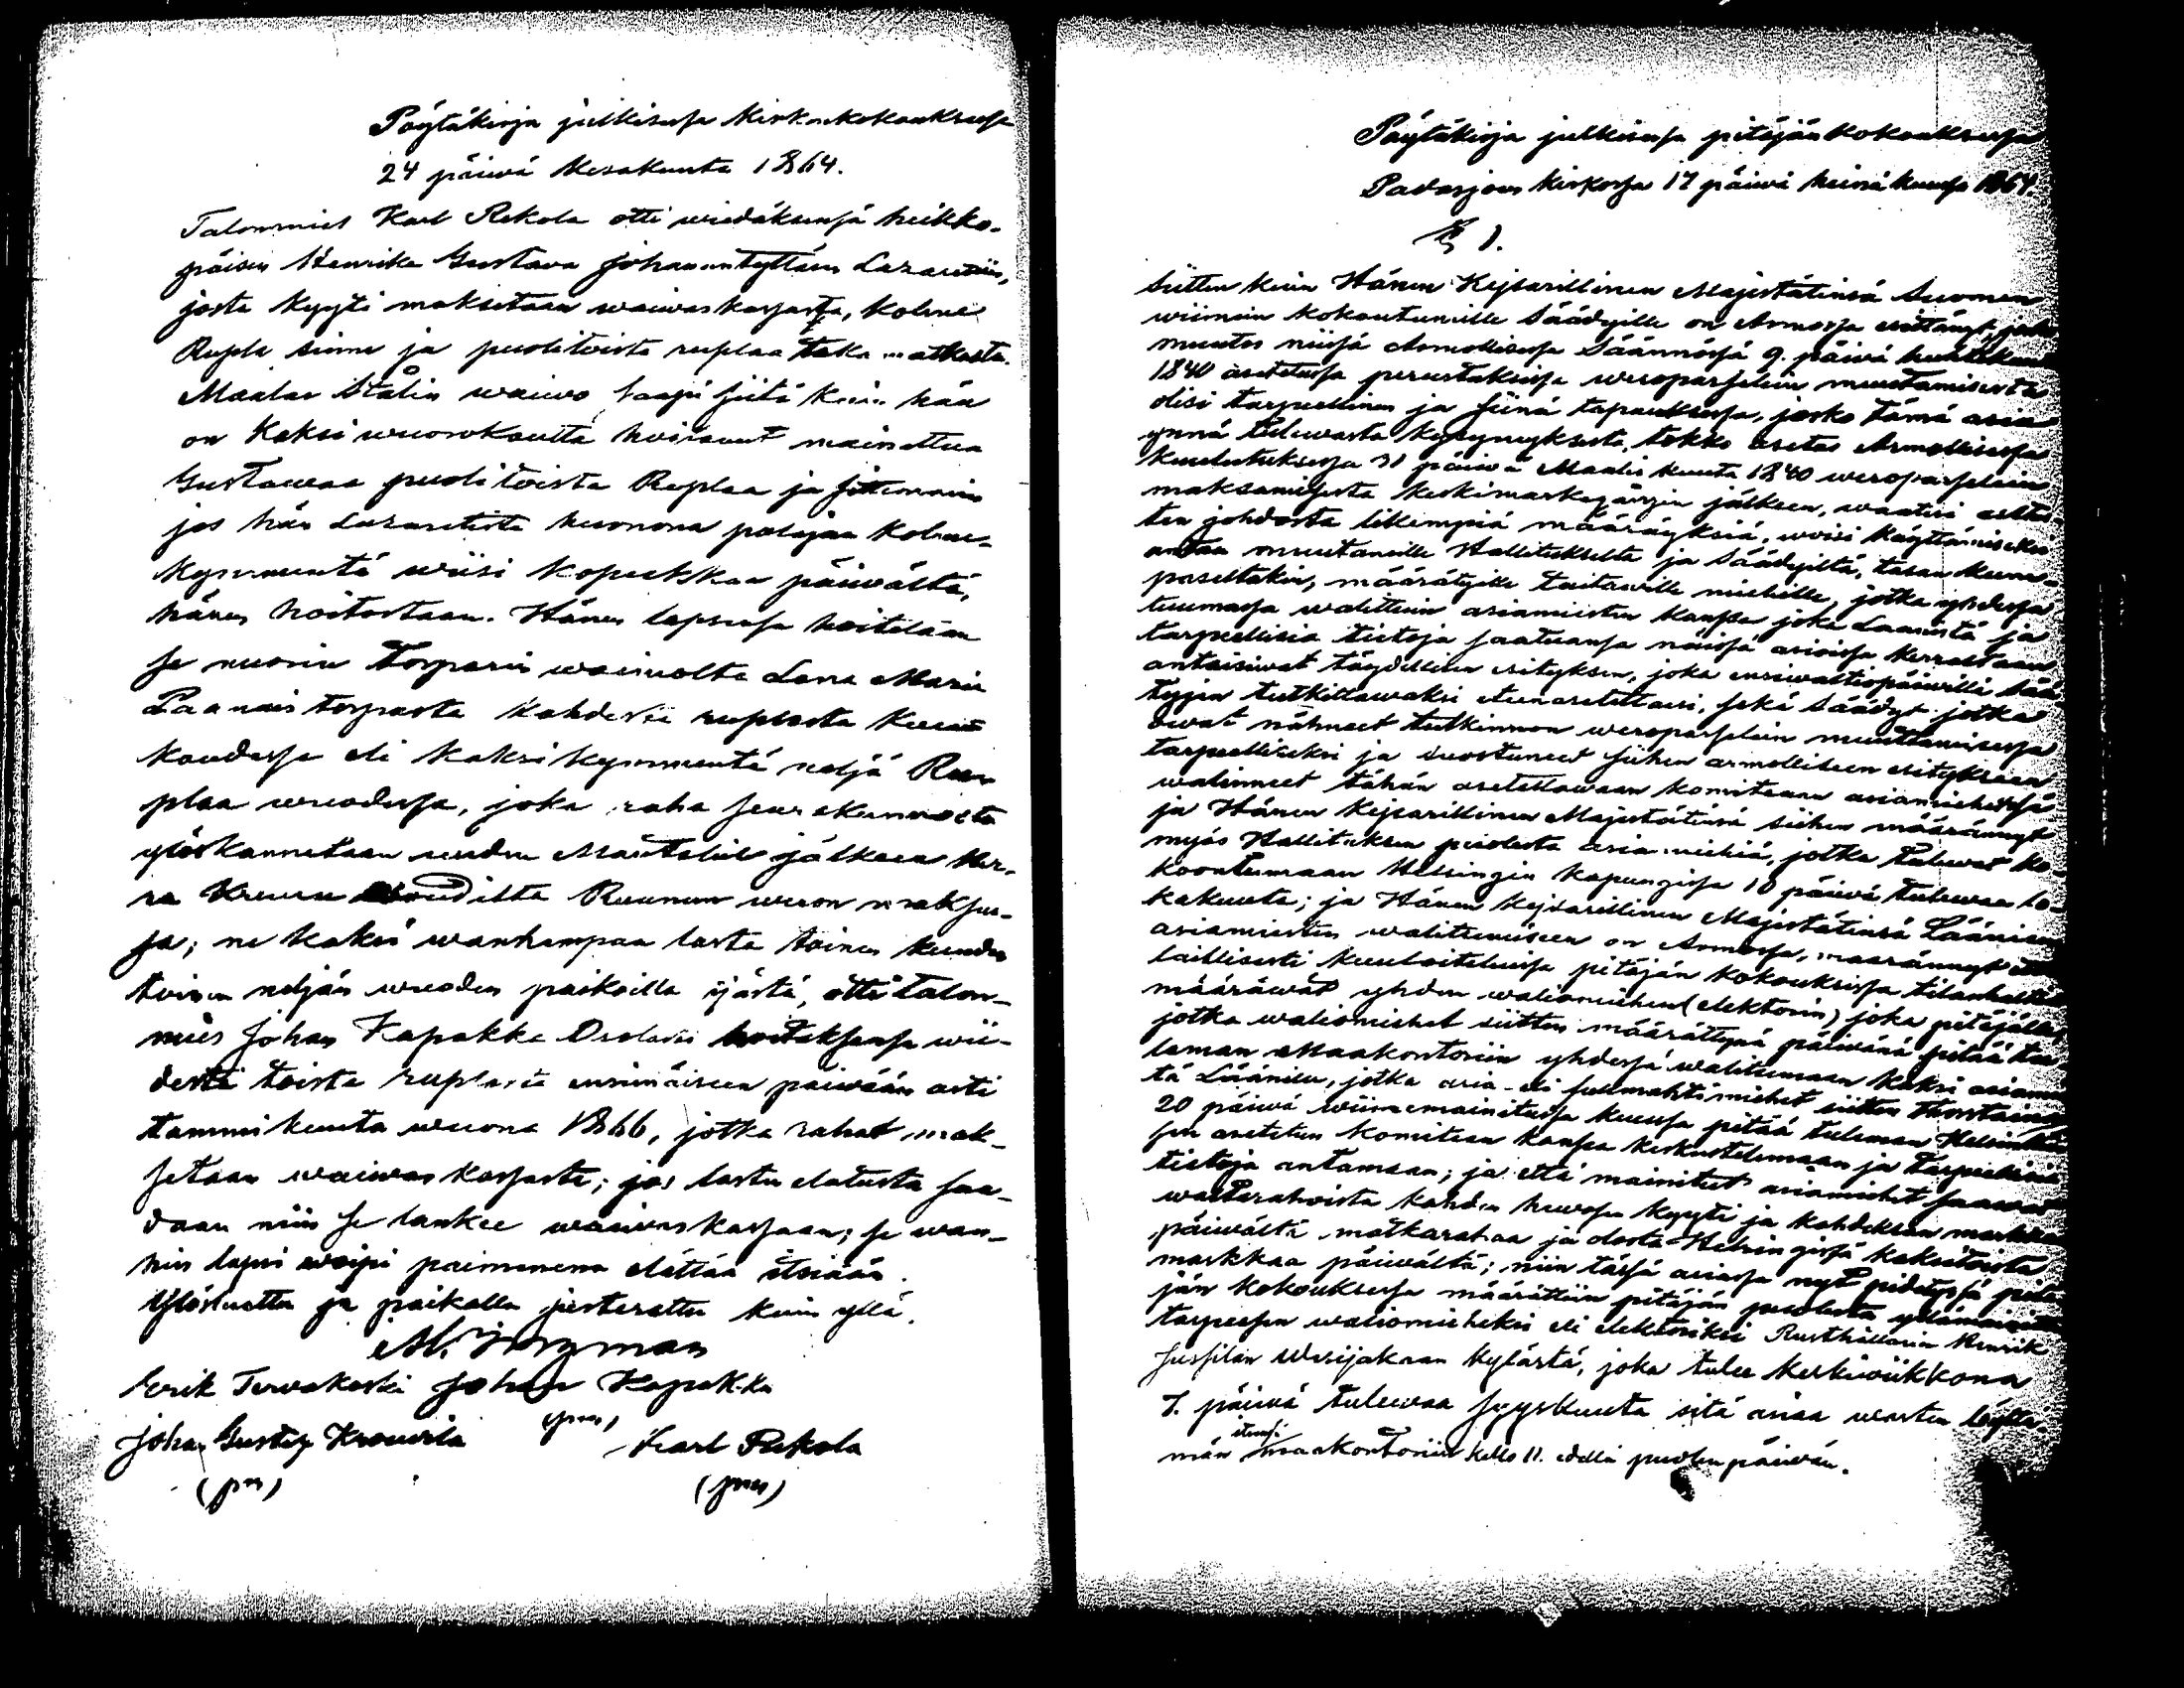 Pöytäkirja julkisesa Kirkonkokouksesa
24 päiwä Kesäkuuta 1864.
Talonmies Karl Rekola otti wiedäksensä heikko-
päisen Henrika Gustava Johanintyttären Lazarettiin,
josta kyyti maksetaan waiwaskassasta, Kolme
Rupla sinne ja puolitoista ruplaa taka matkasta.
Maalar Stålin waiwo saapi siitä kuin hän
on kaksi wuorokautta hoitanut mainittua
Gustawaa puolitoista Ruplaa ja sittemmin
jos hän Lazaretista huonona palajaa kolme-
kymmentä wiisi kopeekkaa päiwältä,
hänen hoitostaan. Hänen lapsensa hoitetaan
se nuorin Torparin waimolta Lena Maria
Paanais torpasta kahdesta ruplasta kuu-
kaudessa eli kaksikymmentä neljä Ru-
plaa wuodessa, joka raha seurakunnasta
ylöskannetaan uuden Mantalin jälkeen Her-
ra Kruunu woudilta Ruunun weron maksus-
sa; ne kaksi wanhempaa lasta toinen kuuden
toinen neljän wuoden paikoilla ijästä, otti talon-
mies Johan Kapakka Osolasta hoitaksensa wii-
destä toista ruplasta ensimäiseen päiwään asti
tammikuuta wuonna 1866, jotka rahat mak-
setaan waiwaskassasta; jos lasten elatusta saa-
daan niin se lankee waiwaskassaan; se wan-
hin lapsi woipi paimenena elättää itsiään.
Ylösluettu ja paikalla justerattu kuin yllä.
Erik Terwakoski Johan Kapakka
(pm)
Johan Gustaf Krouwila Karl Rekola
(pm) (pm)
Pöytäkirja julkisesa pitäjänkokouksessa
Padasjoen Kirkossa 17 päiwä heinäkuussa 1864.
§ 1.
Siitten kuin Hänen Kejsarillinen Majestätinsä Suomen
wiimein kokoutuneille Säädyille on Armossa esittänyt,
muutos niisä Armollisessa Säännössä 9. päiwä huhtikuu
1840 asetetussa perustuksissa weroparselein muuttamisesta
olisi tarpeellinen ja siinä tapauksessa, josko tämä asia
ynnä tulewasta kysymyksestä, tokko asetus Armollisessa
Kuulutuksessa 31 päiwä Maaliskuuta 1840 weroparselein
maksamisesta keskimarkegängin jälkeen, waatisi
ten johdosta likempiä määräyksiä, woisi käyttämiseksi
antaa muutamille Hallitukselta ja Säädyiltä, tasan kum-
paseltakin, määrätyille taitawille miehille, jotka yhdessä
tuumassa walittuin asiamiesten kanssa joka Läänistä ja
tarpeellisia tietoja saatuansa näissä asioissa kerraltaan
antaisiwat täydellisen esityksen, joka ensiwaltiopäiwillä Sää-
tyjen tutkittawaksi eteenasetettaisi, sekä Säädyt jotka
owat nähneet tutkinnon weroparselein muuttamisessa
tarpeelliseksi ja suostuneet siihen armolliseen esitykseen
walinneet tähän asetettawaan komiteaan asiamiehensä
ja Hänen Kejsarillinen Majestätinsä siihen määrännyt
myös Hallituksen puolesta asiamiehiä, jotka tulewat ko-
koontumaan Helsingin kaupungissa 10 päiwä tulewaa lo-
kakuuta; ja Hänen Kejsarillinen Majestätinsä Läänien
asiamiesten walitsemiseen on Armossa, määrännyt että
laillisesti kuuloitetuissa pitäjän kokouksissa tilanhaltiat
määräwät yhden waliomiehen (elektorin) joka pitäjästä,
jotka waliomiehet siitten määrättynä päiwänä pitää tu-
leman Maakontoriin yhdessä walitsemaan kaksi asiamies-
tä Läänille, jotka asia- eli fullmahtimiehet siitten Thorstaina
20 päiwä wiimemainitussa kuussa pitää tuleman Helsinkiin
sen asetetun komitean kanssa keskustelemaan ja tarpeelisia
tietoja antamaan; ja että mainitut asiamiehet saawat
waltarahoista kahden hewosen kyyti ja kahdeksan markkaa
päiwältä matkarahaa ja olosta Helsingissä kaksitoista
markkaa päiwältä; niin tässä asiassa nyt pidetyssä pitä-
jän kokouksessa määrättiin pitäjän puolesta yllämainittu
tarpeesen waliomieheksi eli elektoriksi Rusthollarin Henrik
Jussilan Wesijakaan kylästä, joka tulee keskiwiikkona
7. päiwä tulewaa Syyskuuta sitä asiaa warten löyttä-
män itsensä maakontoriin kello 11. edellä puolen päiwän.